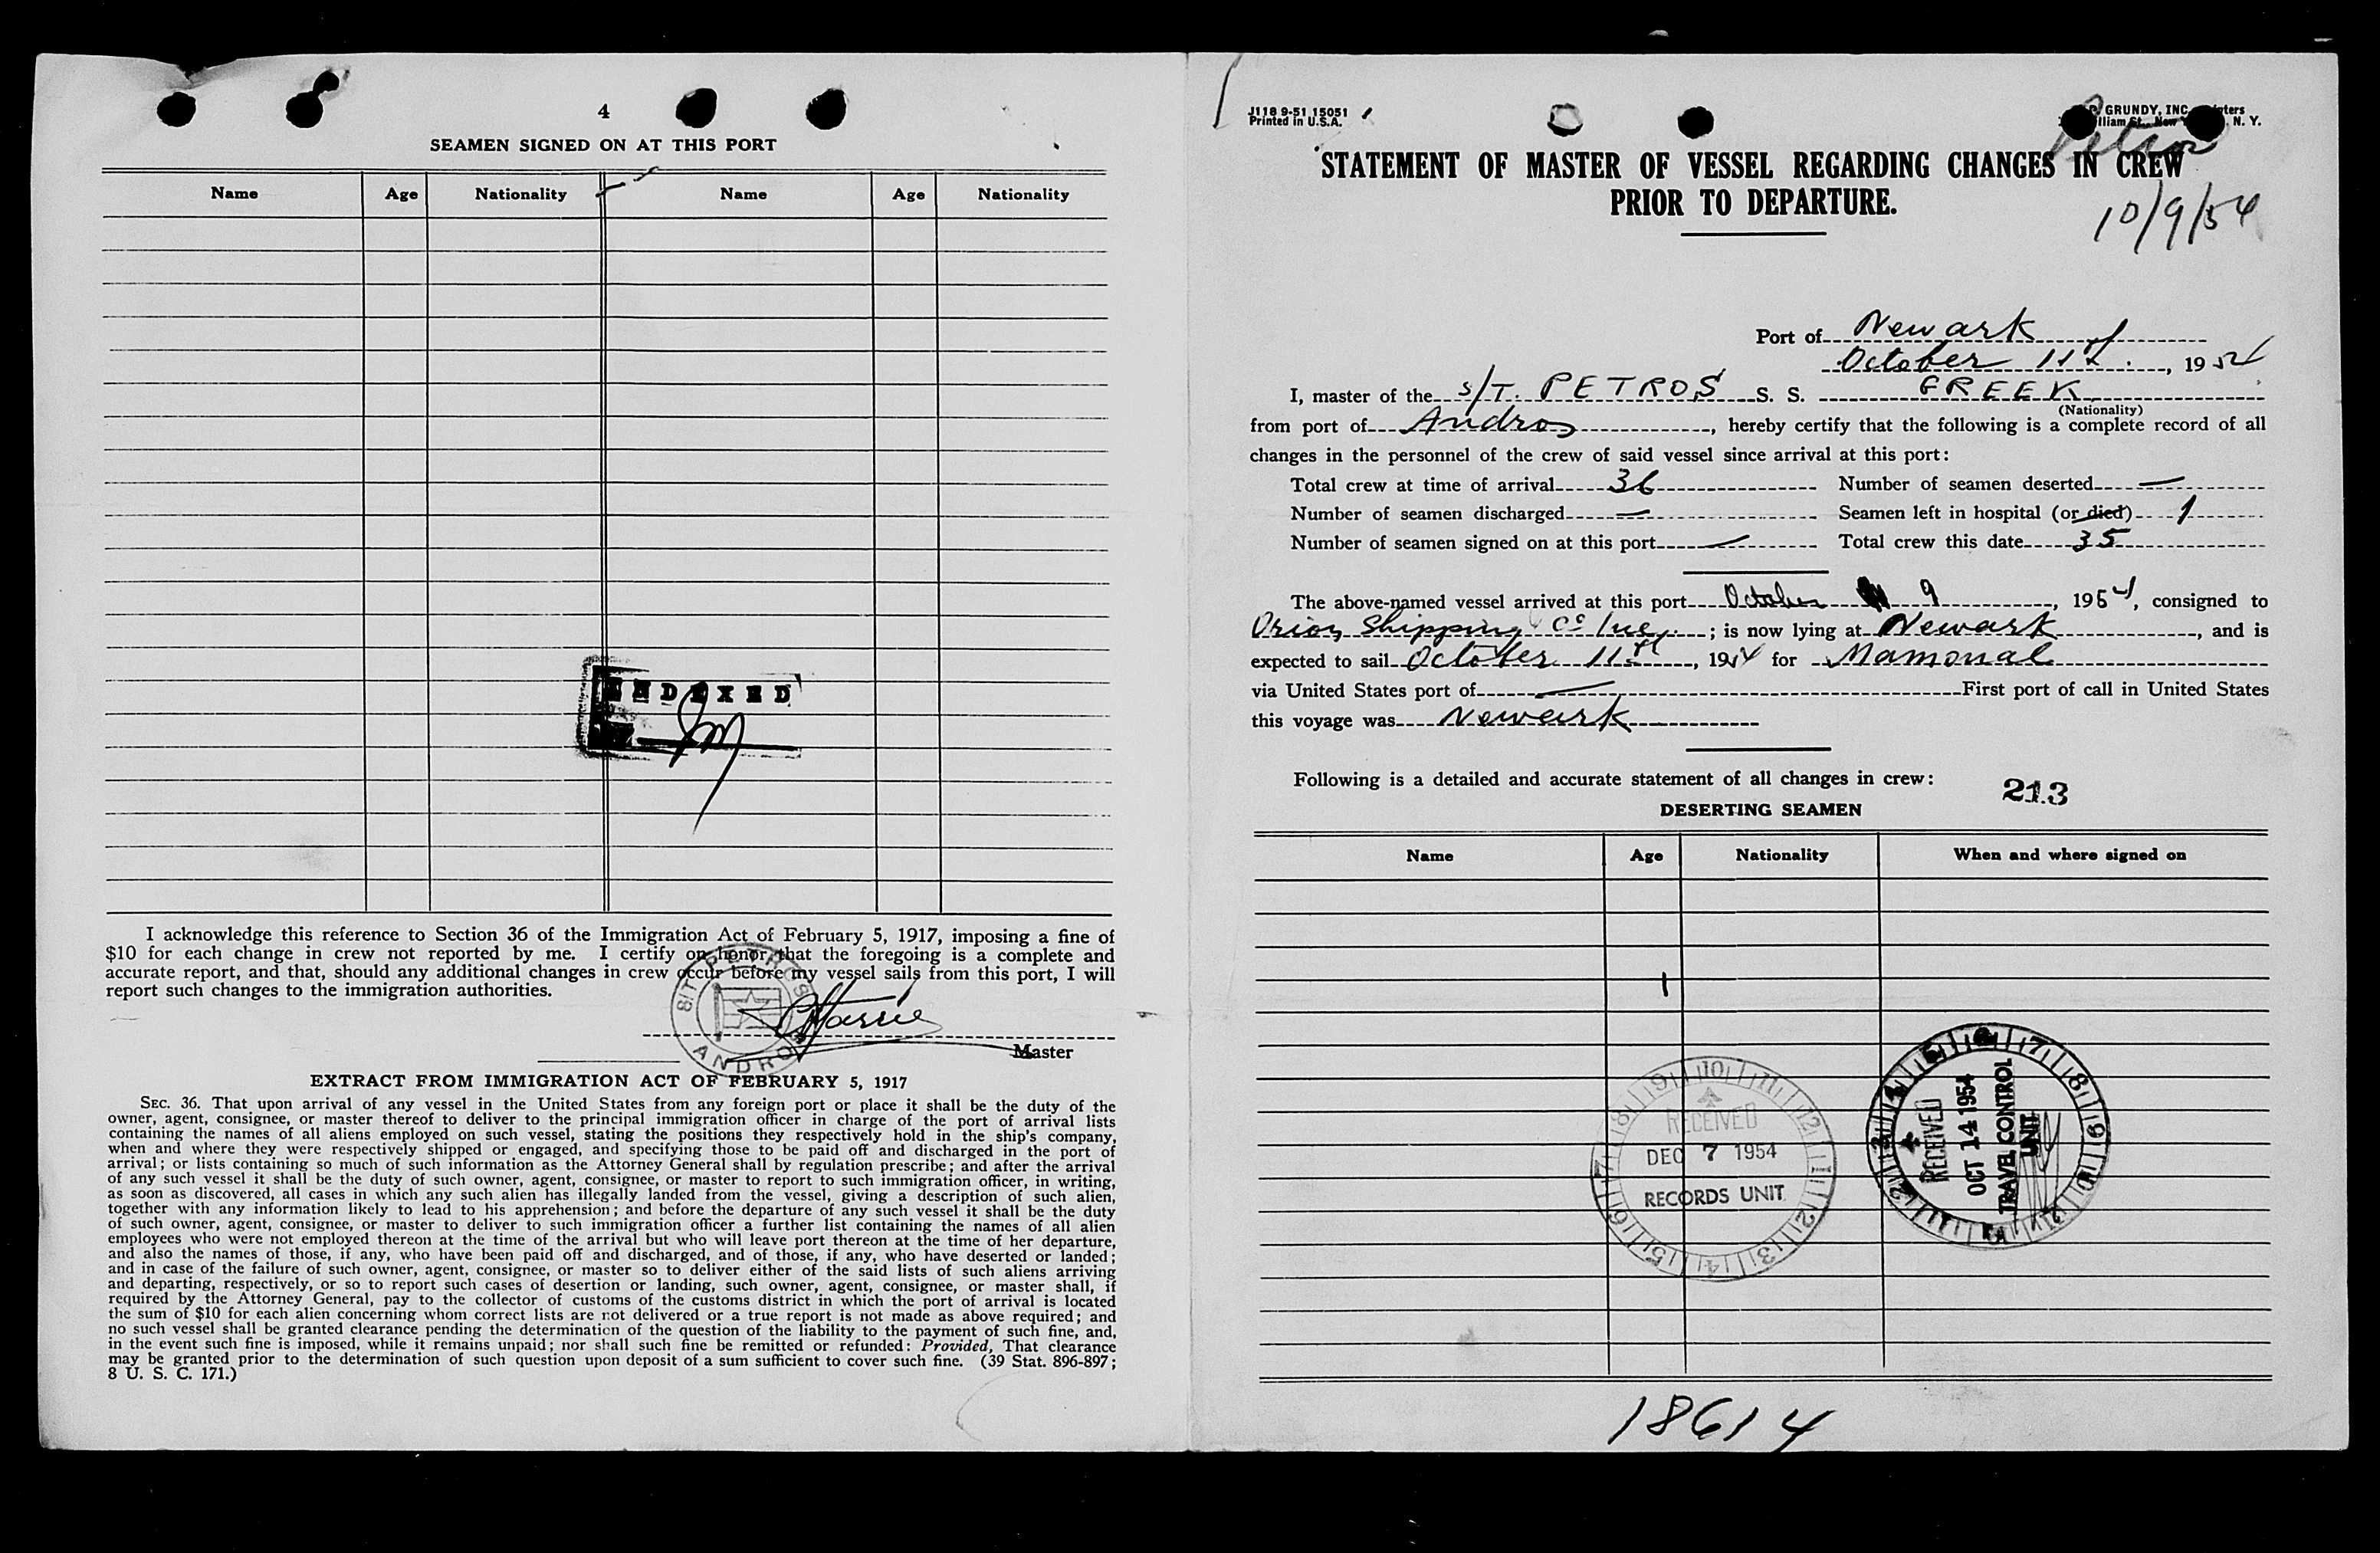 4
SEAMEN SIGNED ON AT THIS PORT
Name Age Nationality Name Age Nationality
INDEXED
I acknowledge this reference to Section 36 of the Immigration Act of February 5, 1917, imposing a fine of
$10 for each change in crew not reported by me. I certify on honor that the foregoing is a complete and
accurate report, and that, should any additional changes in crew occur before my vessel sails from this port, I will
report such changes to the immigration authorities.
S/T PETROS
ANDROS
Master
EXTRACT FROM IMMIGRATION ACT OF FEBRUARY 5, 1917
SEC. 36. That upon arrival of any vessel in the United States from any foreign port or place it shall be the duty of the
owner, agent, consignee, or master thereof to deliver to the principal immigration officer in charge of the port of arrival lists
containing the names of all aliens employed on such vessel, stating the positions they respectively hold in the ship's company,
when and where they were respectively shipped or engaged, and specifying those to be paid off and discharged in the port of
arrival; or lists containing so much of such information as the Attorney General shall by regulation prescribe; and after the arrival
of any such vessel it shall be the duty of such owner, agent, consignee, or master to report to such immigration officer, in writing,
as soon as discovered, all cases in which any such alien has illegally landed from the vessel, giving a description of such alien,
together with any information likely to lead to his apprehension; and before the departure of any such vessel it shall be the duty
of such owner, agent, consignee, or master to deliver to such immigration officer a further list containing the names of all alien
employees who were not employed thereon at the time of the arrival but who will leave port thereon at the time of her departure,
and also the names of those, if any, who have been paid off and discharged, and of those, if any, who have deserted or landed;
and in case of the failure of such owner, agent, consignee, or master so to deliver either of the said lists of such aliens arriving
and departing, respectively, or so to report such cases of desertion or landing, such owner, agent, consignee, or master shall, if
required by the Attorney General, pay to the collector of customs of the customs district in which the port of arrival is located
the sum of $10 for each alien concerning whom correct lists are not delivered or a true report is not made as above required; and
no such vessel shall be granted clearance pending the determination of the question of the liability to the payment of such fine, and,
in the event such fine is imposed, while it remains unpaid; nor shall such fine be remitted or refunded: Provided, That clearance
may be granted prior to the determination of such question upon deposit of a sum sufficient to cover such fine. (39 Stat. 896-897;
8 U. S. C. 171.)
J118 9-51 15051
Printed in U.S.A.
GRUNDY, INC.
N. Y.
Petros
STATEMENT OF MASTER OF VESSEL REGARDING CHANGES IN CREW
PRIOR TO DEPARTURE.
10/9/54
Port of Newark
October 11th, 1954
I, master of the S/T. PETROS S. S. GREEK
(Nationality)
from port of Andros, hereby certify that the following is a complete record of all
changes in the personnel of the crew of said vessel since arrival at this port:
Total crew at time of arrival 36 Number of seamen deserted —
Number of seamen discharged — Seamen left in hospital (or died) 1
Number of seamen signed on at this port — Total crew this date 35
The above-named vessel arrived at this port October 9, 1954, consigned to
Orion Shipping Co Inc.; is now lying at Newark, and is
expected to sail October 11th, 1954 for Mamonal
via United States port of — First port of call in United States
this voyage was Newark
Following is a detailed and accurate statement of all changes in crew:
213
DESERTING SEAMEN
Name Age Nationality When and where signed on
RECEIVED
DEC 7 1954
RECORDS UNIT
RECEIVED
OCT 14 1954
TRAVEL CONTROL
UNIT
18614